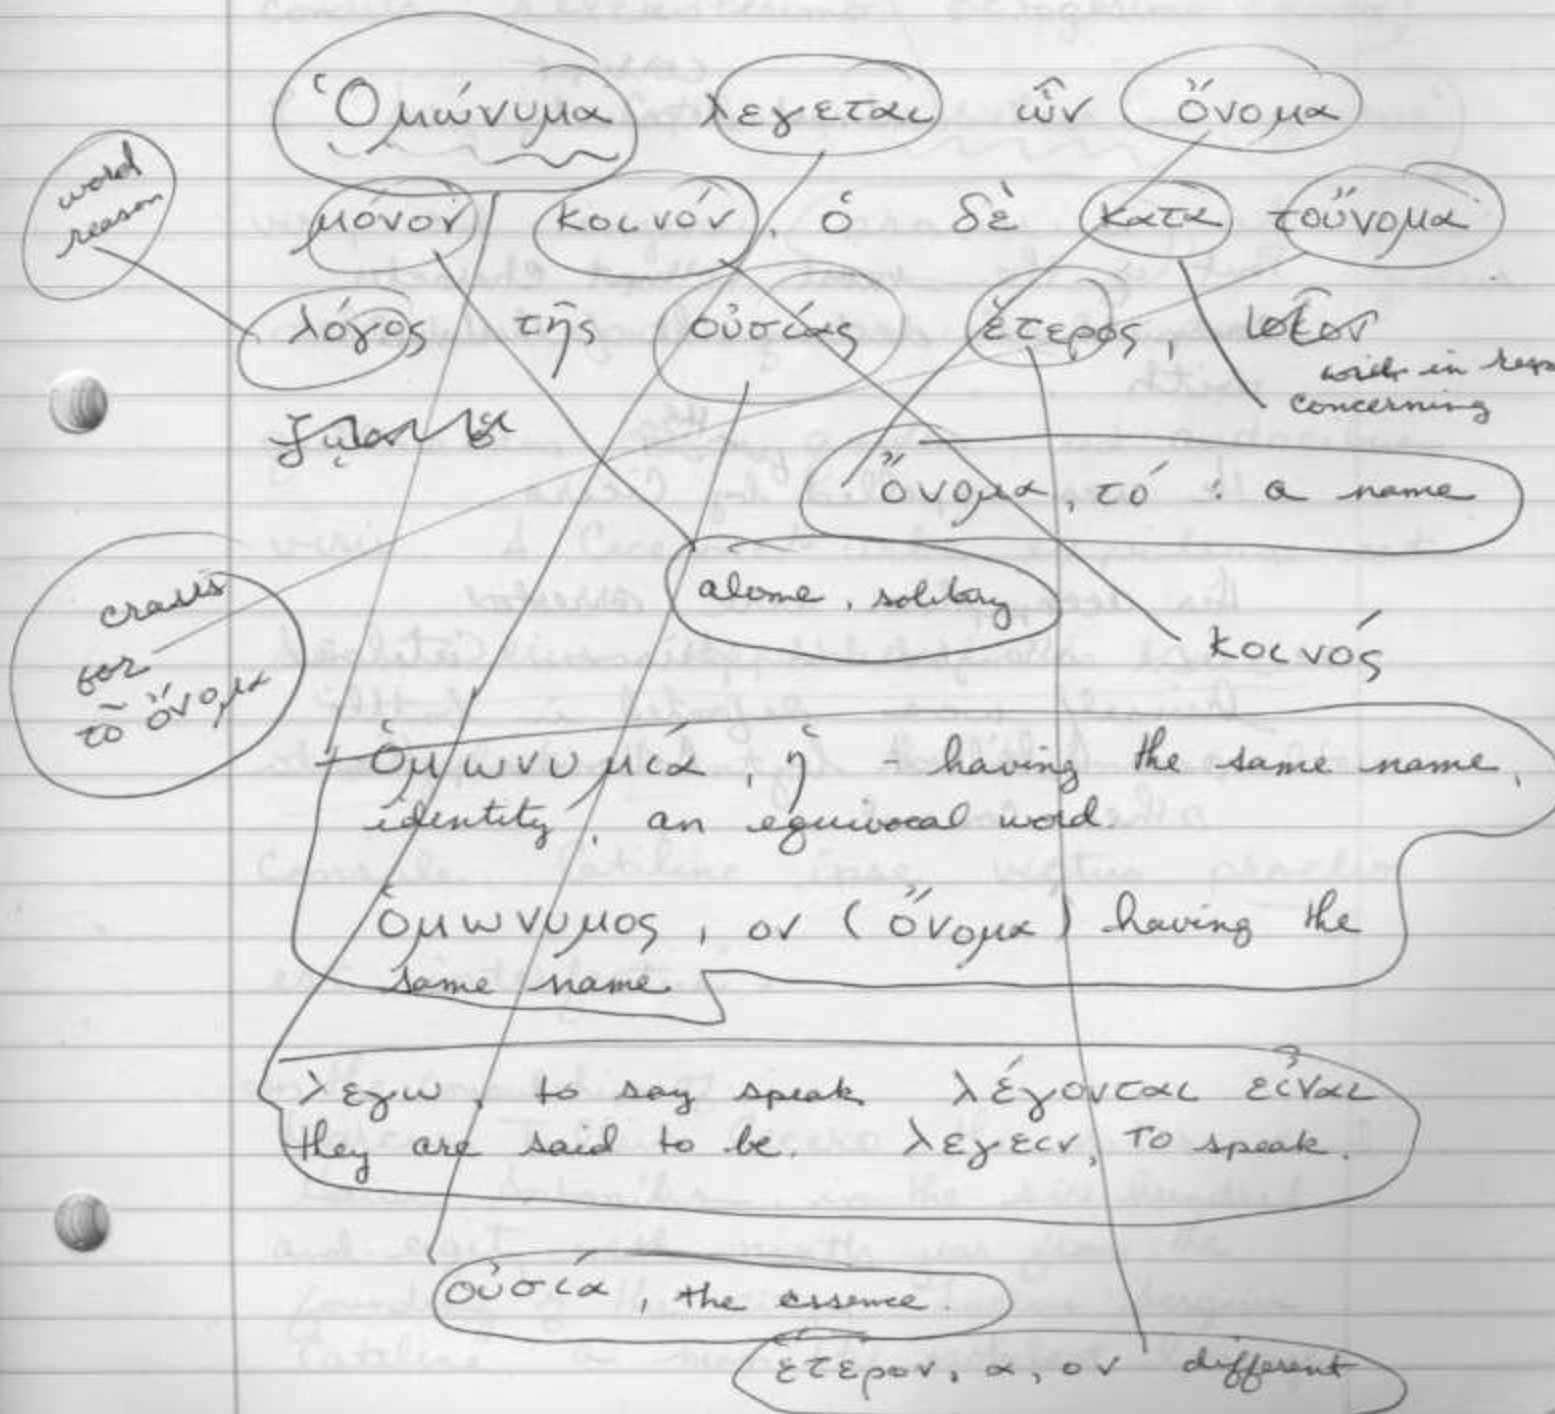 Ὁμώνυμα λεγεται ὧν ὄνομα
μόνον κοινόν, ὁ δὲ κατα τοὔνομα
word
reason
λόγος τῆς οὐσίας ἑτερος,
in
concerning
ὄνομα, τό : a name
alone, solitary
κοινός
crasis
for
τὸ ὄνομα
Ὁμωνυμιά, ἡ - having the same name,
identity, an equivocal word.
ὁμωνυμος, ον (ὄνομα) having the
same name.
λεγω, to say speak λέγονται εἶναι
they are said to be. λεγειν, To speak.
οὐσία, the essence.
ἑτέρον, α, ον different